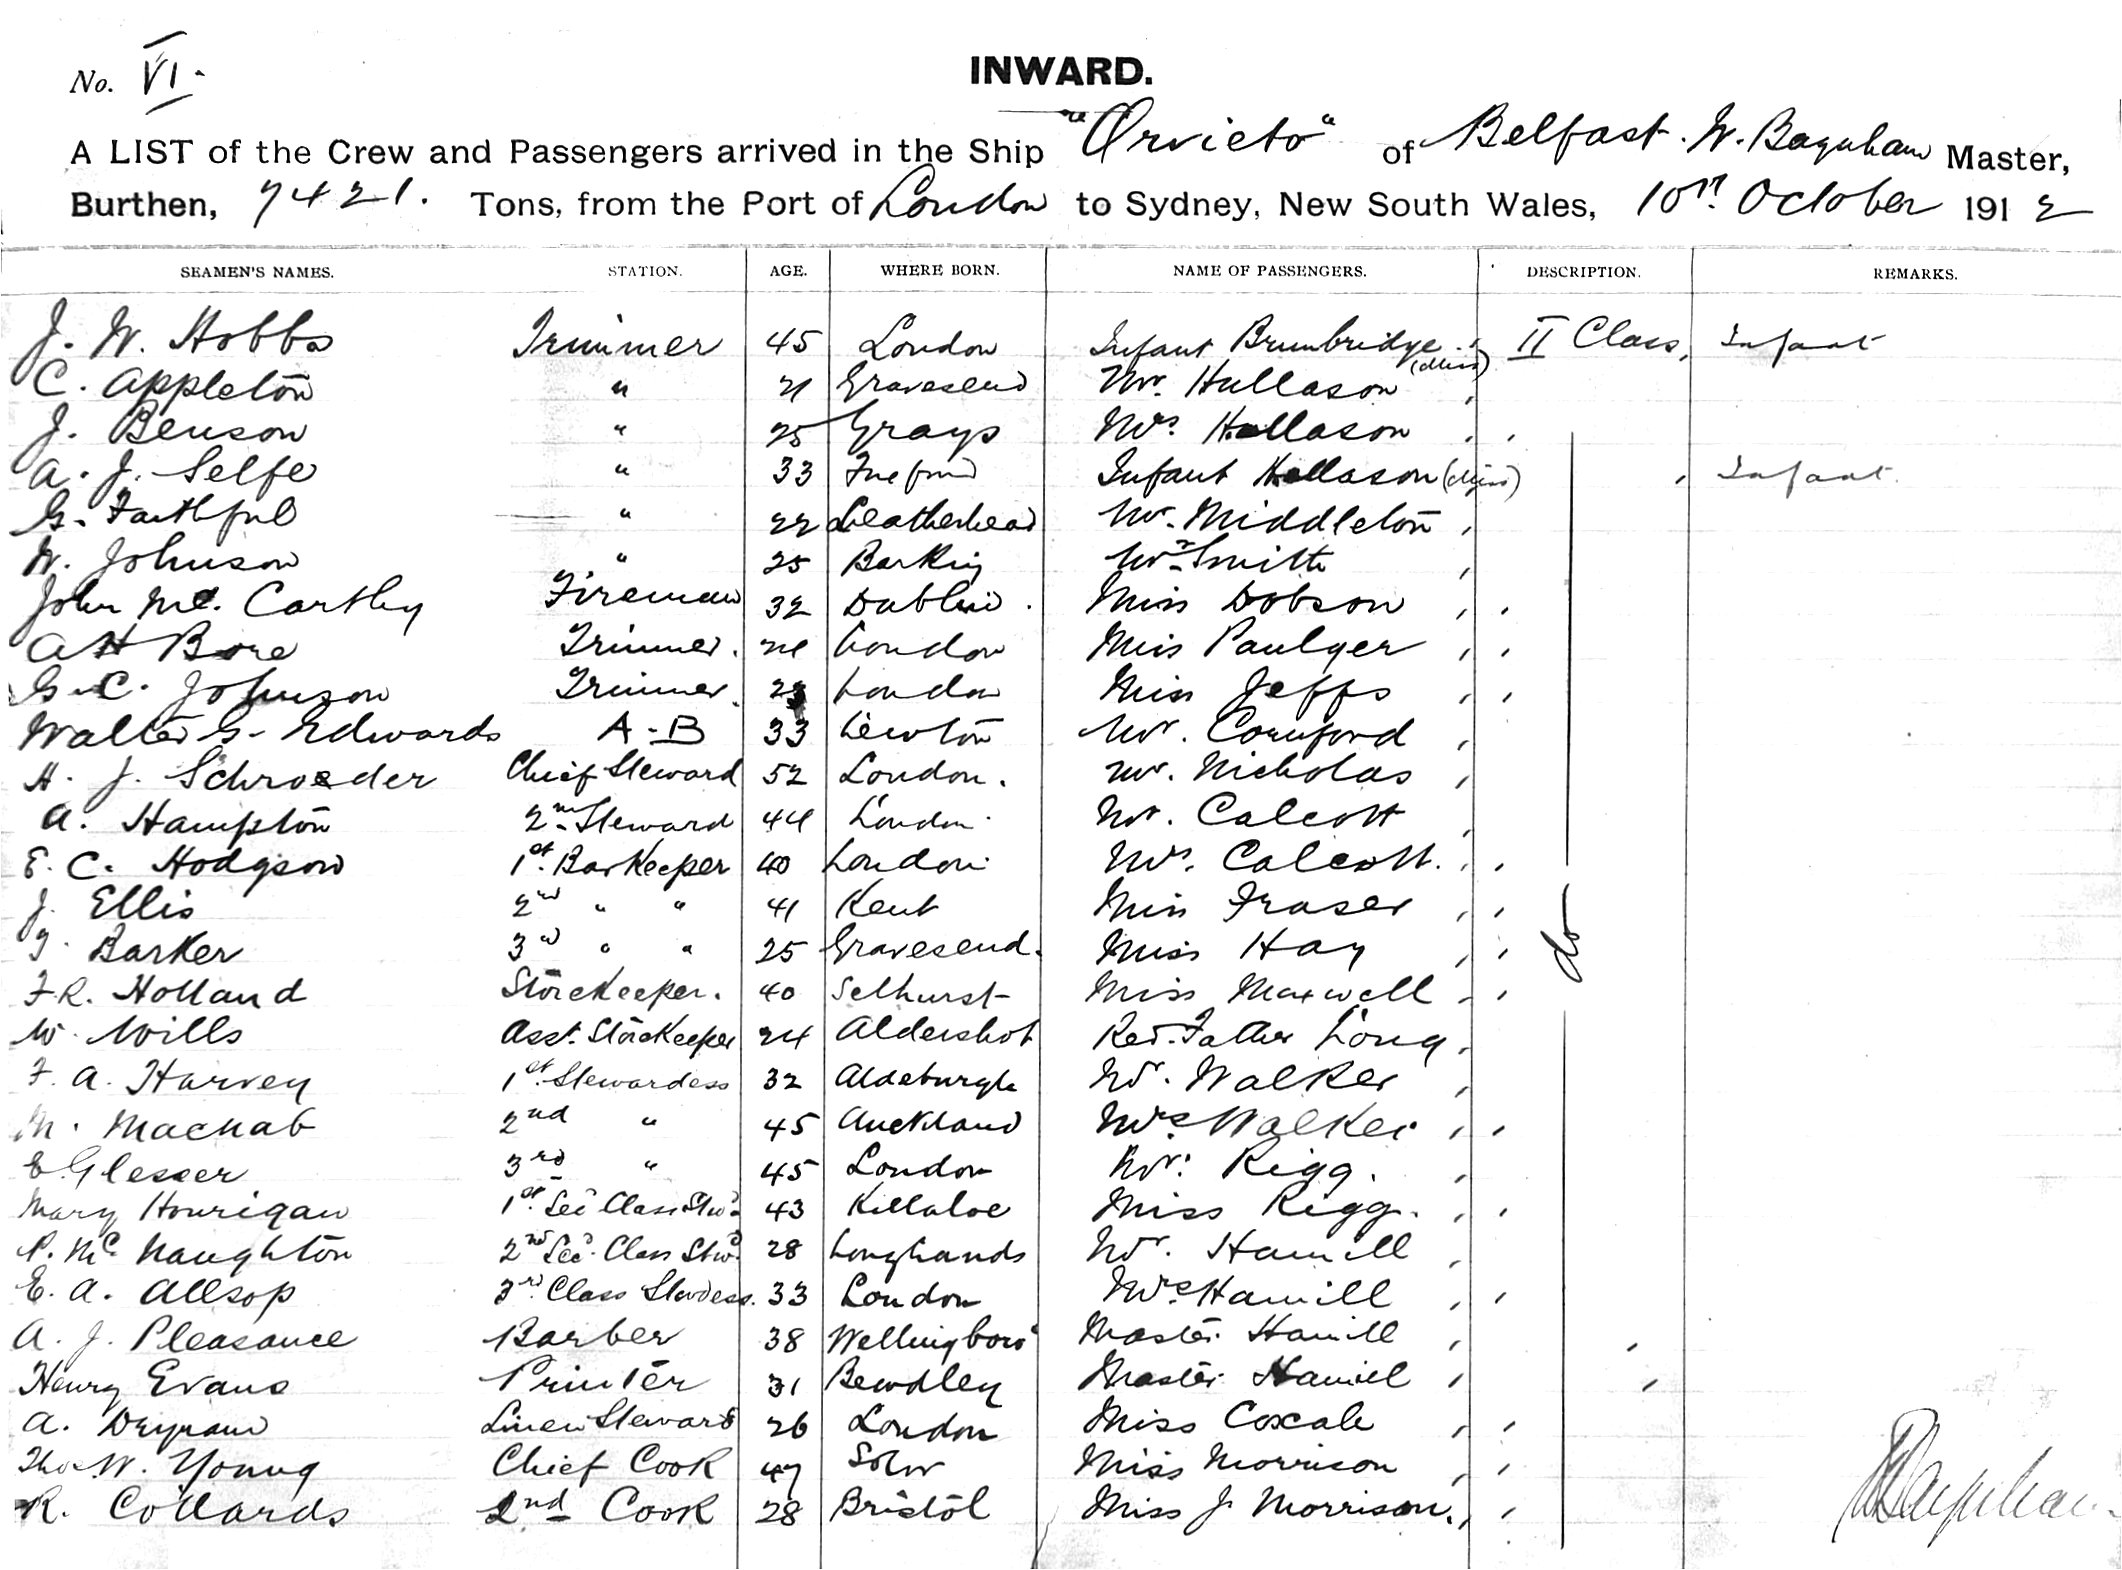 No. VI.
INWARD.
A LIST of the Crew and Passengers arrived in the Ship "Orvieto" of Belfast. W. Baynham Master,
Burthen, 7421. Tons, from the Port of London to Sydney, New South Wales, 10th October 1912
SEAMEN'S NAMES. STATION. AGE. WHERE BORN. NAME OF PASSENGERS. DESCRIPTION. REMARKS.
J. W. Hobbs Trimmer 45 London Infant Brumbridge (Miss) II Class, Infant
C. Appleton " 21 Gravesend Mr. Hallason
J. Benson " 25 Grays Mrs. Hallason
A. J. Selfe " 33 Infant Hallason (Miss) Infant.
G. Faithful " 22 Leatherhead Mr. Middleton
W. Johnson " 25 Barking Mr Smith
John Mc. Carthy Fireman 32 Dublin. Miss Dobson
A H Bore Trimmer. London Miss Paulger
G. C. Johnson Trimmer. London Miss Jeffs
Walter G. Edwards A-B 33 Newton Mr. Cornford
H. J. Schroeder Chief Steward 52 London. Mr. Nicholas
A. Hampton 2nd Steward 44 London. Mr. Calcott
E. C. Hodgson 1st BarKeeper 40 London. Mrs. Calcott.
J. Ellis 2nd " " 41 Kent Miss Fraser
T. Barker 3rd " " 25 Gravesend. Miss Hay do
F. R. Holland StoreKeeper. 40 Selhurst Miss Maxwell
W. Wills Asst. StoreKeeper 24 Aldershot Rev. Father Long
F. A. Harvey 1st Stewardess 32 Aldeburgh Mr. Walker
M. Macnab 2nd " 45 Auckland Mrs Walker
E Glesser 3rd " 45 London Mr. Rigg.
Mary Hourigan 1st Sec Class Stwd 43 Killaloe Miss Rigg.
P. Mc Naughton 2nd Sec. Class Stwd. 28 Longhands Mr. Hamill
E. A. Allsop 3rd Class Stewdess. 33 London Mrs Hamill
A. J. Pleasance Barber 38 Wellingboro' Master Hamill
Henry Evans Printer 31 Bewdley Master Hamill
A. Linen Steward 26 London Miss
Thos W. Young Chief Cook 47 Miss Morrison
R. Collards 2nd Cook 28 Bristol Miss J. Morrison.
W Baynham